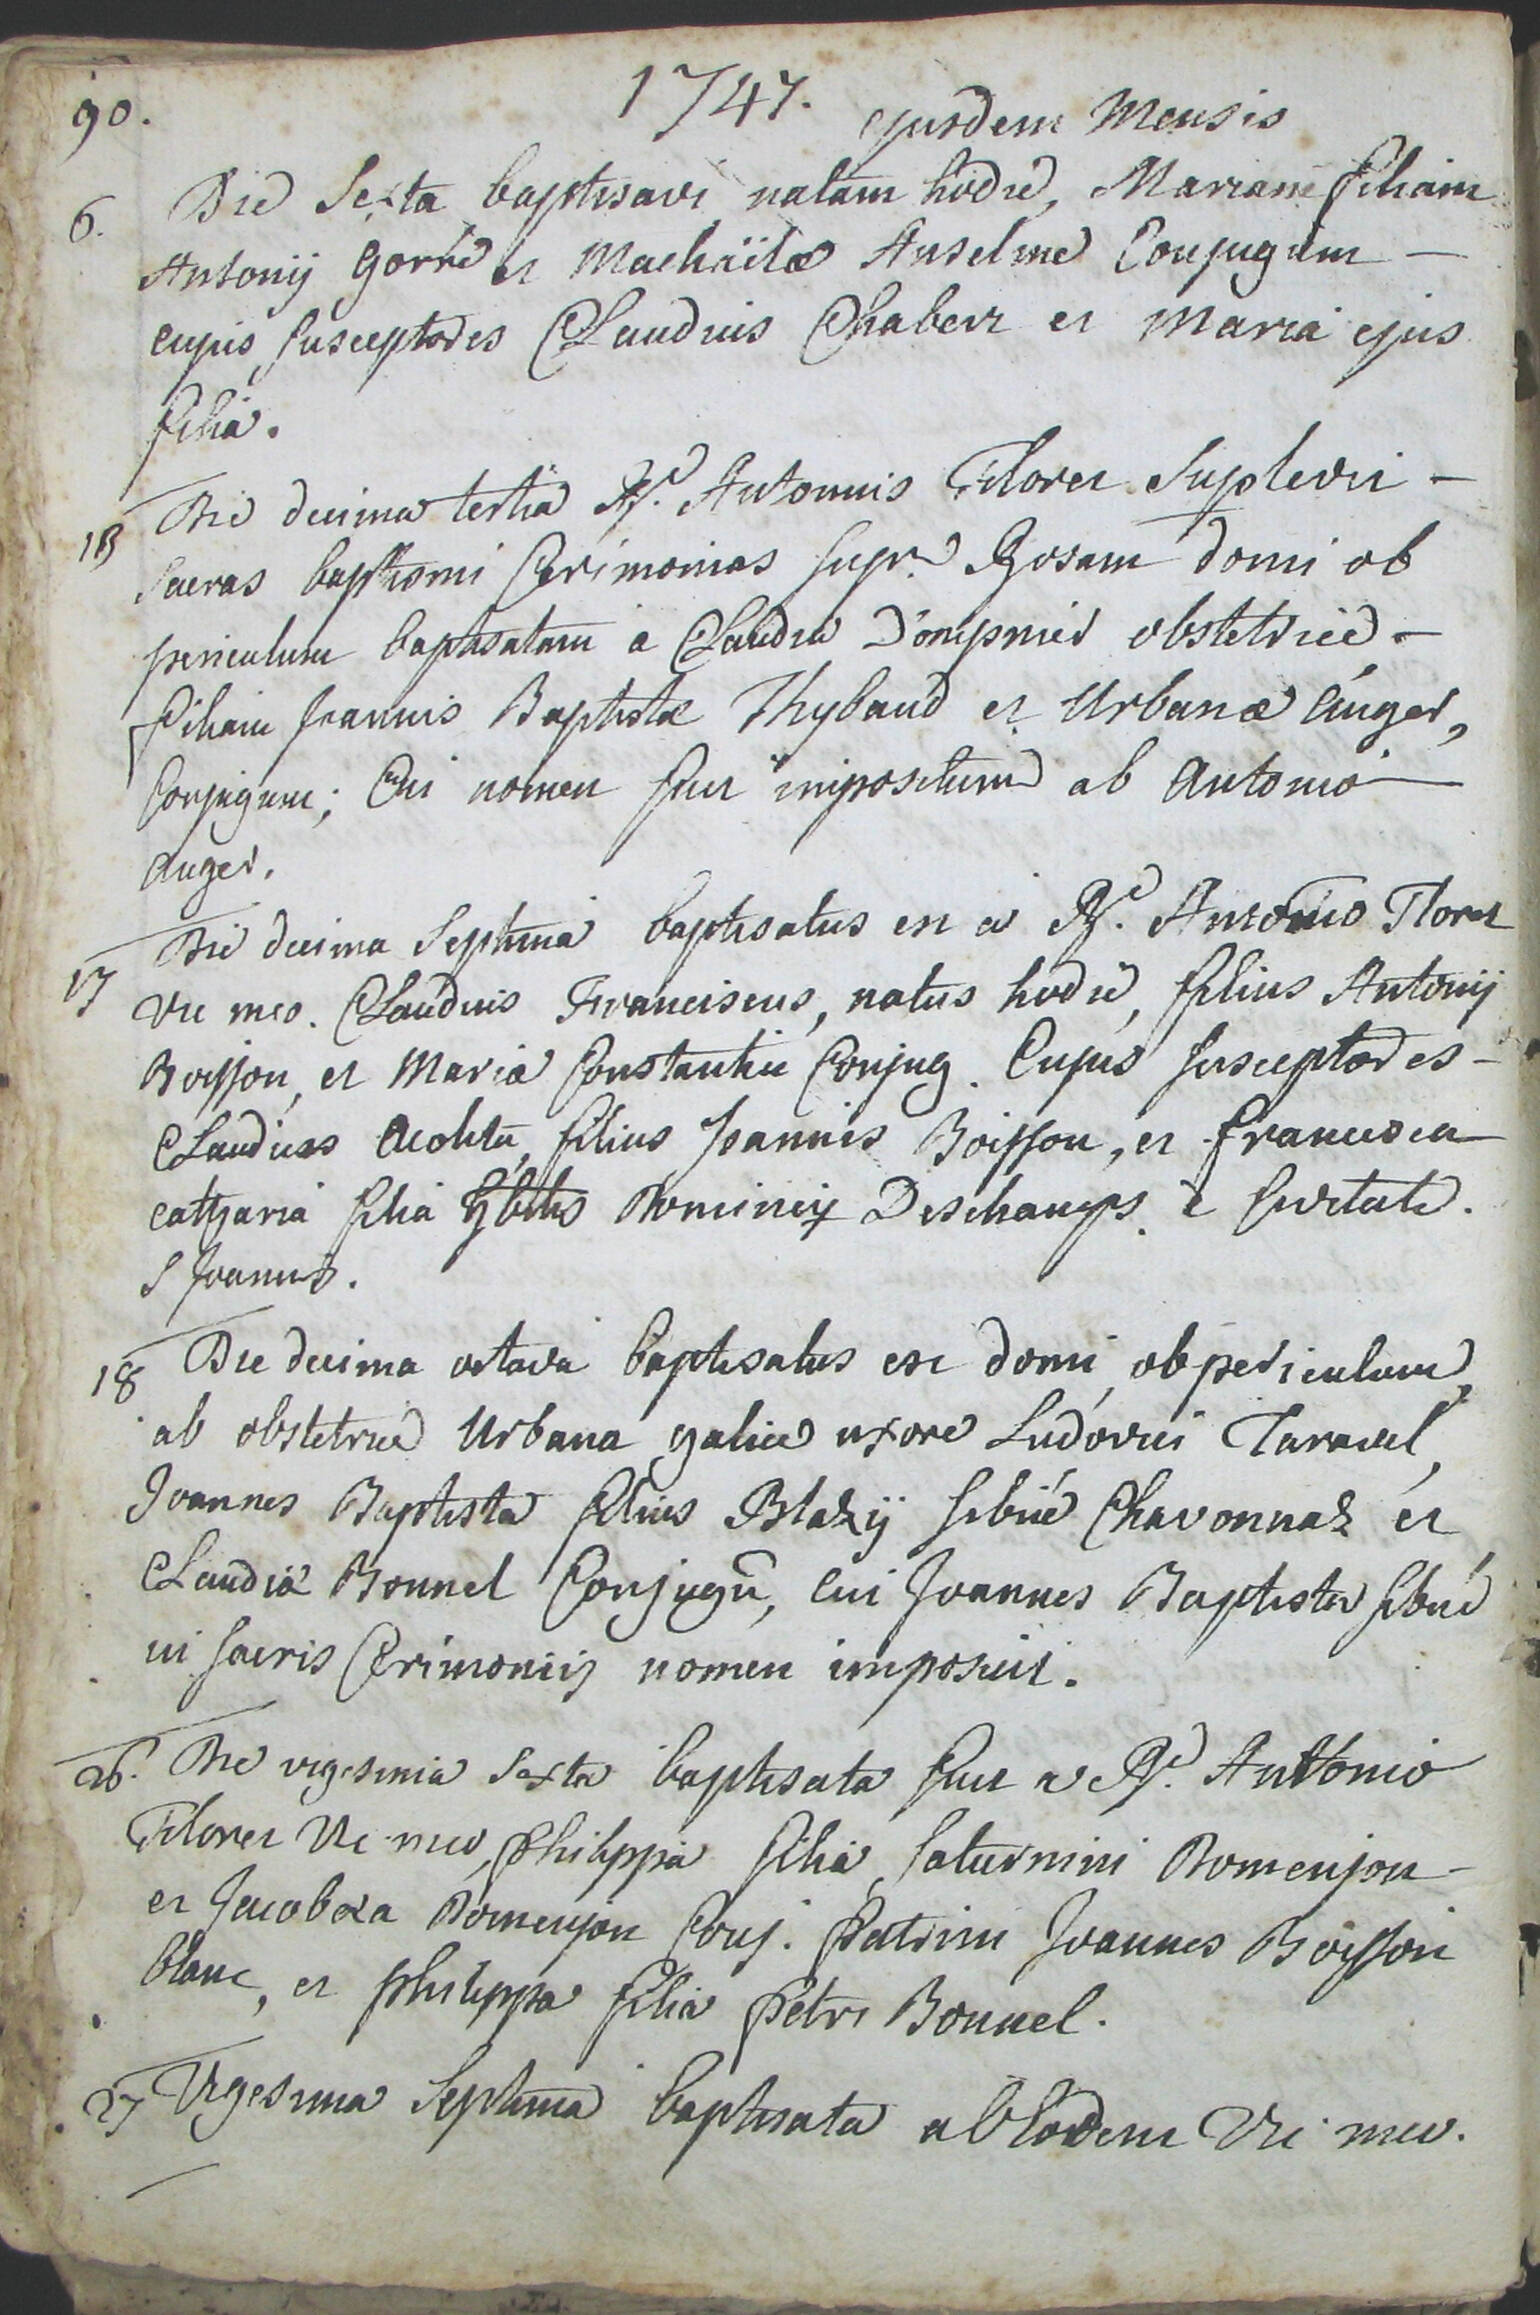 90.
1747.
ejusdem Mensis
6. Die Sexta baptisavi natam hodie, Mariam filiam
Antonij Gorré et Anselme Conjugum —
cujus susceptores Claudius Chabert et Maria ejus
filia.
13 Die decima tertia Rd. Antonius Floret Suplevit —
sacras baptismi Cerimonias supr. Rosam domi ob
periculum baptisatam a Claudia Dompnier obstetrice —
filiam Joannis Baptistæ Thybaud et Urbanæ Auger,
Conjugum; Cui nomen fuit impositum ab Antonio —
Auger.
17 Die decima Septima baptisatus est a Rd. Antonio Floret
Vic meo. Claudius Franciscus, natus hodie, filius Antonij
Boisson, et Maria Constantin Conjug. Cujus susceptores —
Claudius Acolita, filius Joannis Boisson, et Francisca
catharia filia Dominici Deschamps, è Civitate.
S Joannis.
18 Die decima octava baptisatus est domi, ob periculum,
ab obstetrice Urbana galice uxore Ludovici Taravel,
Joannes Baptista filius Blazij Sibué Chavonnaz et
Claudiæ Bonnel Conjugū, cui Joannes Baptista Sibué
in sacris Cerimoniis nomen imposuit.
26. Die vigesima Sexta baptisata fuit a Rd. Antonio
Floret Vic meo, Philippa filia Saturnini Romenjon —
et Jacobæa Romenjon Conj. Patrini Joannes Boisson
blanc, et philippa filia Petri Bonnel.
27 Vigesima Septima baptisata ab Eodem Vic meo.